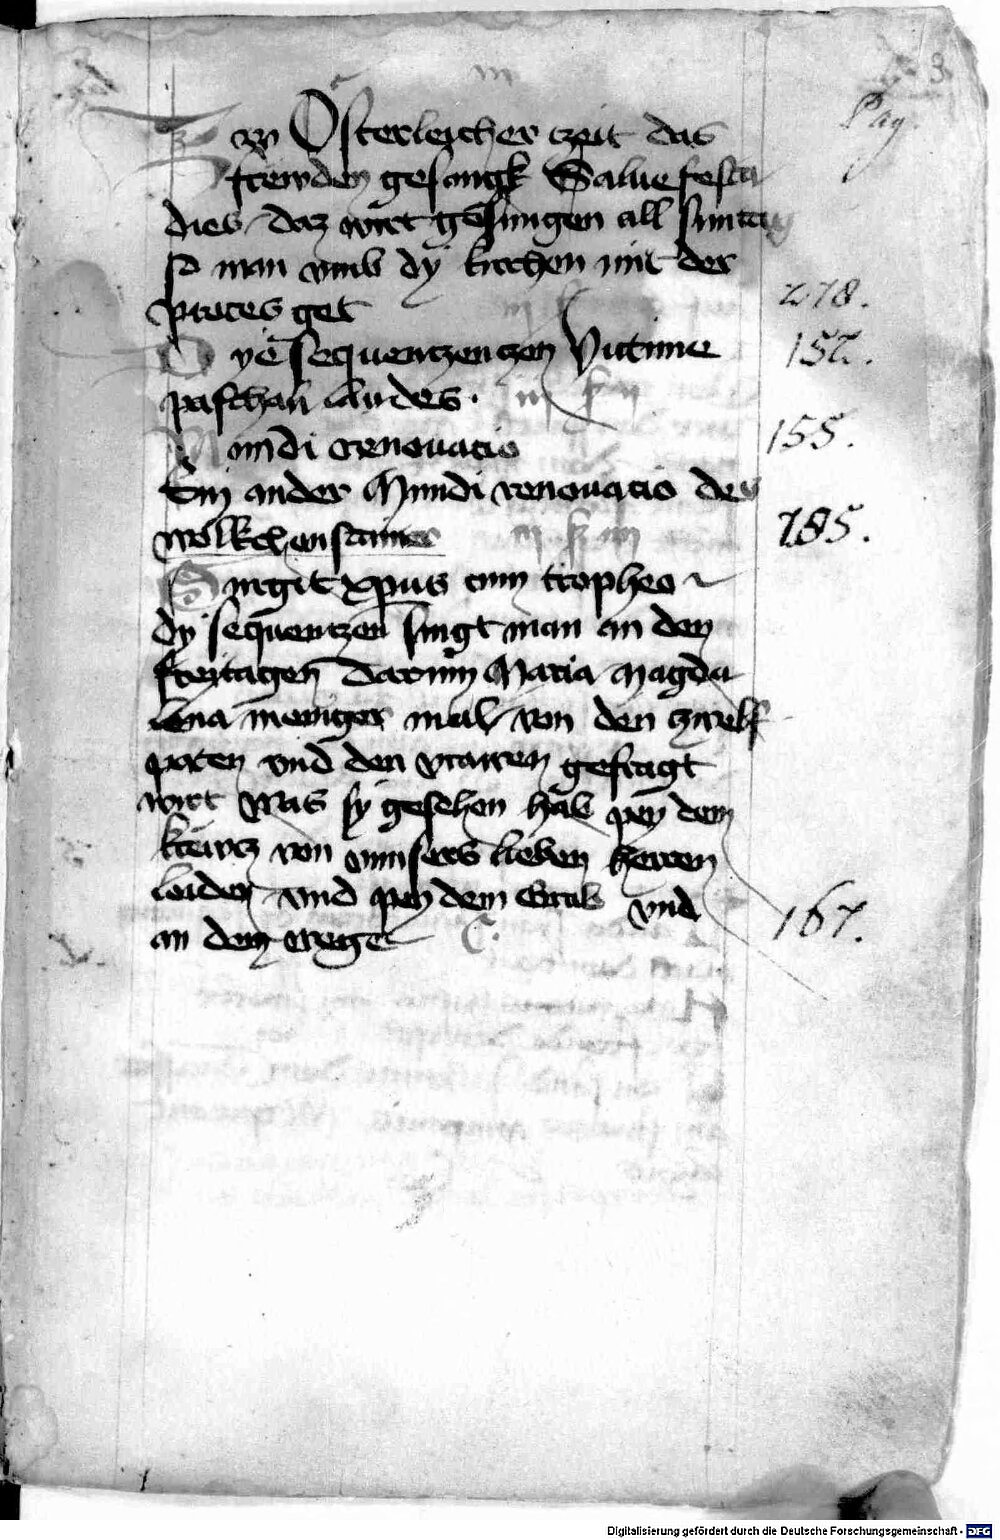 3
Pag.
Zw Osterleicher czeit das
frewden gesangk Salue festa
dies daz wirt gesungen all suntag
so man vmb dy kirchen mit der
proces get 278.
Dye sequenczen czen Victime 152.
paschali laudes.
Mundi renouacio 155.
Ein ander Mundi renouacio des
wolkchenstainer 185.
Surgit xpus cum tropheo
dy sequenczen singt man an den
freytagen darinn Maria Magda
lena meniger mal von den zwelf
poten vnd den vrawen gefragt
wirt was sy gesehen hab pey dem
krewcz von vnnsers lieben herren
leiden vnd pey dem Grab vnd
an dem wege 167.
Digitalisierung gefördert durch die Deutsche Forschungsgemeinschaft - DFG